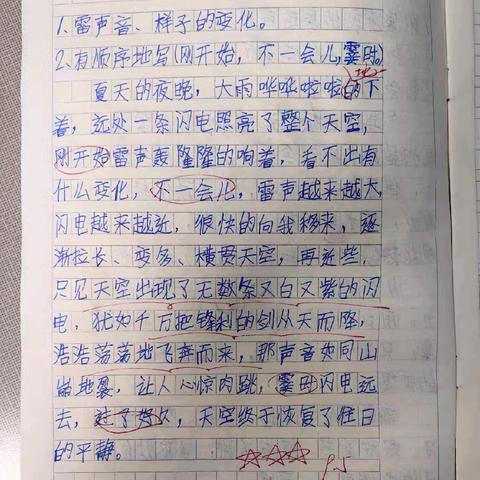 1、雷声音、样子的变化。
2、有顺序地写(刚开始，不一会儿，霎时)
地
夏天的夜晚，大雨哗哗啦啦的下
着，远处一条闪电照亮了整个天空，
刚开始雷声轰隆隆的响着，看不出有
什么变化，不一会儿，雷声越来越大，
闪电越来越近，很快的向我移来，逐
渐拉长、变多、横贯天空，再近些，
只见天空出现了无数条又白又紫的闪
电，犹如千万把锋利的剑从天而降，
浩浩荡荡地飞奔而来，那声音如同山
崩地裂，让人心惊肉跳，霎时闪电远
去，过了好久，天空终于恢复了往日
的平静。